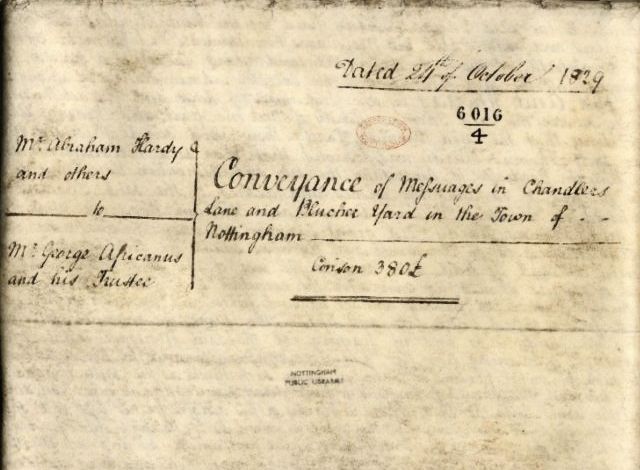 Dated 24th of October 1829
6016
4
Mr. Abraham Hardy
and others
to
Mr. George Africanus
and his Trustee
Conveyance of Meſsuages in Chandlers
Lane and Blucher Yard in the Town of - -
Nottingham
Conson 380£
NOTTINGHAM
PUBLIC LIBRARIES